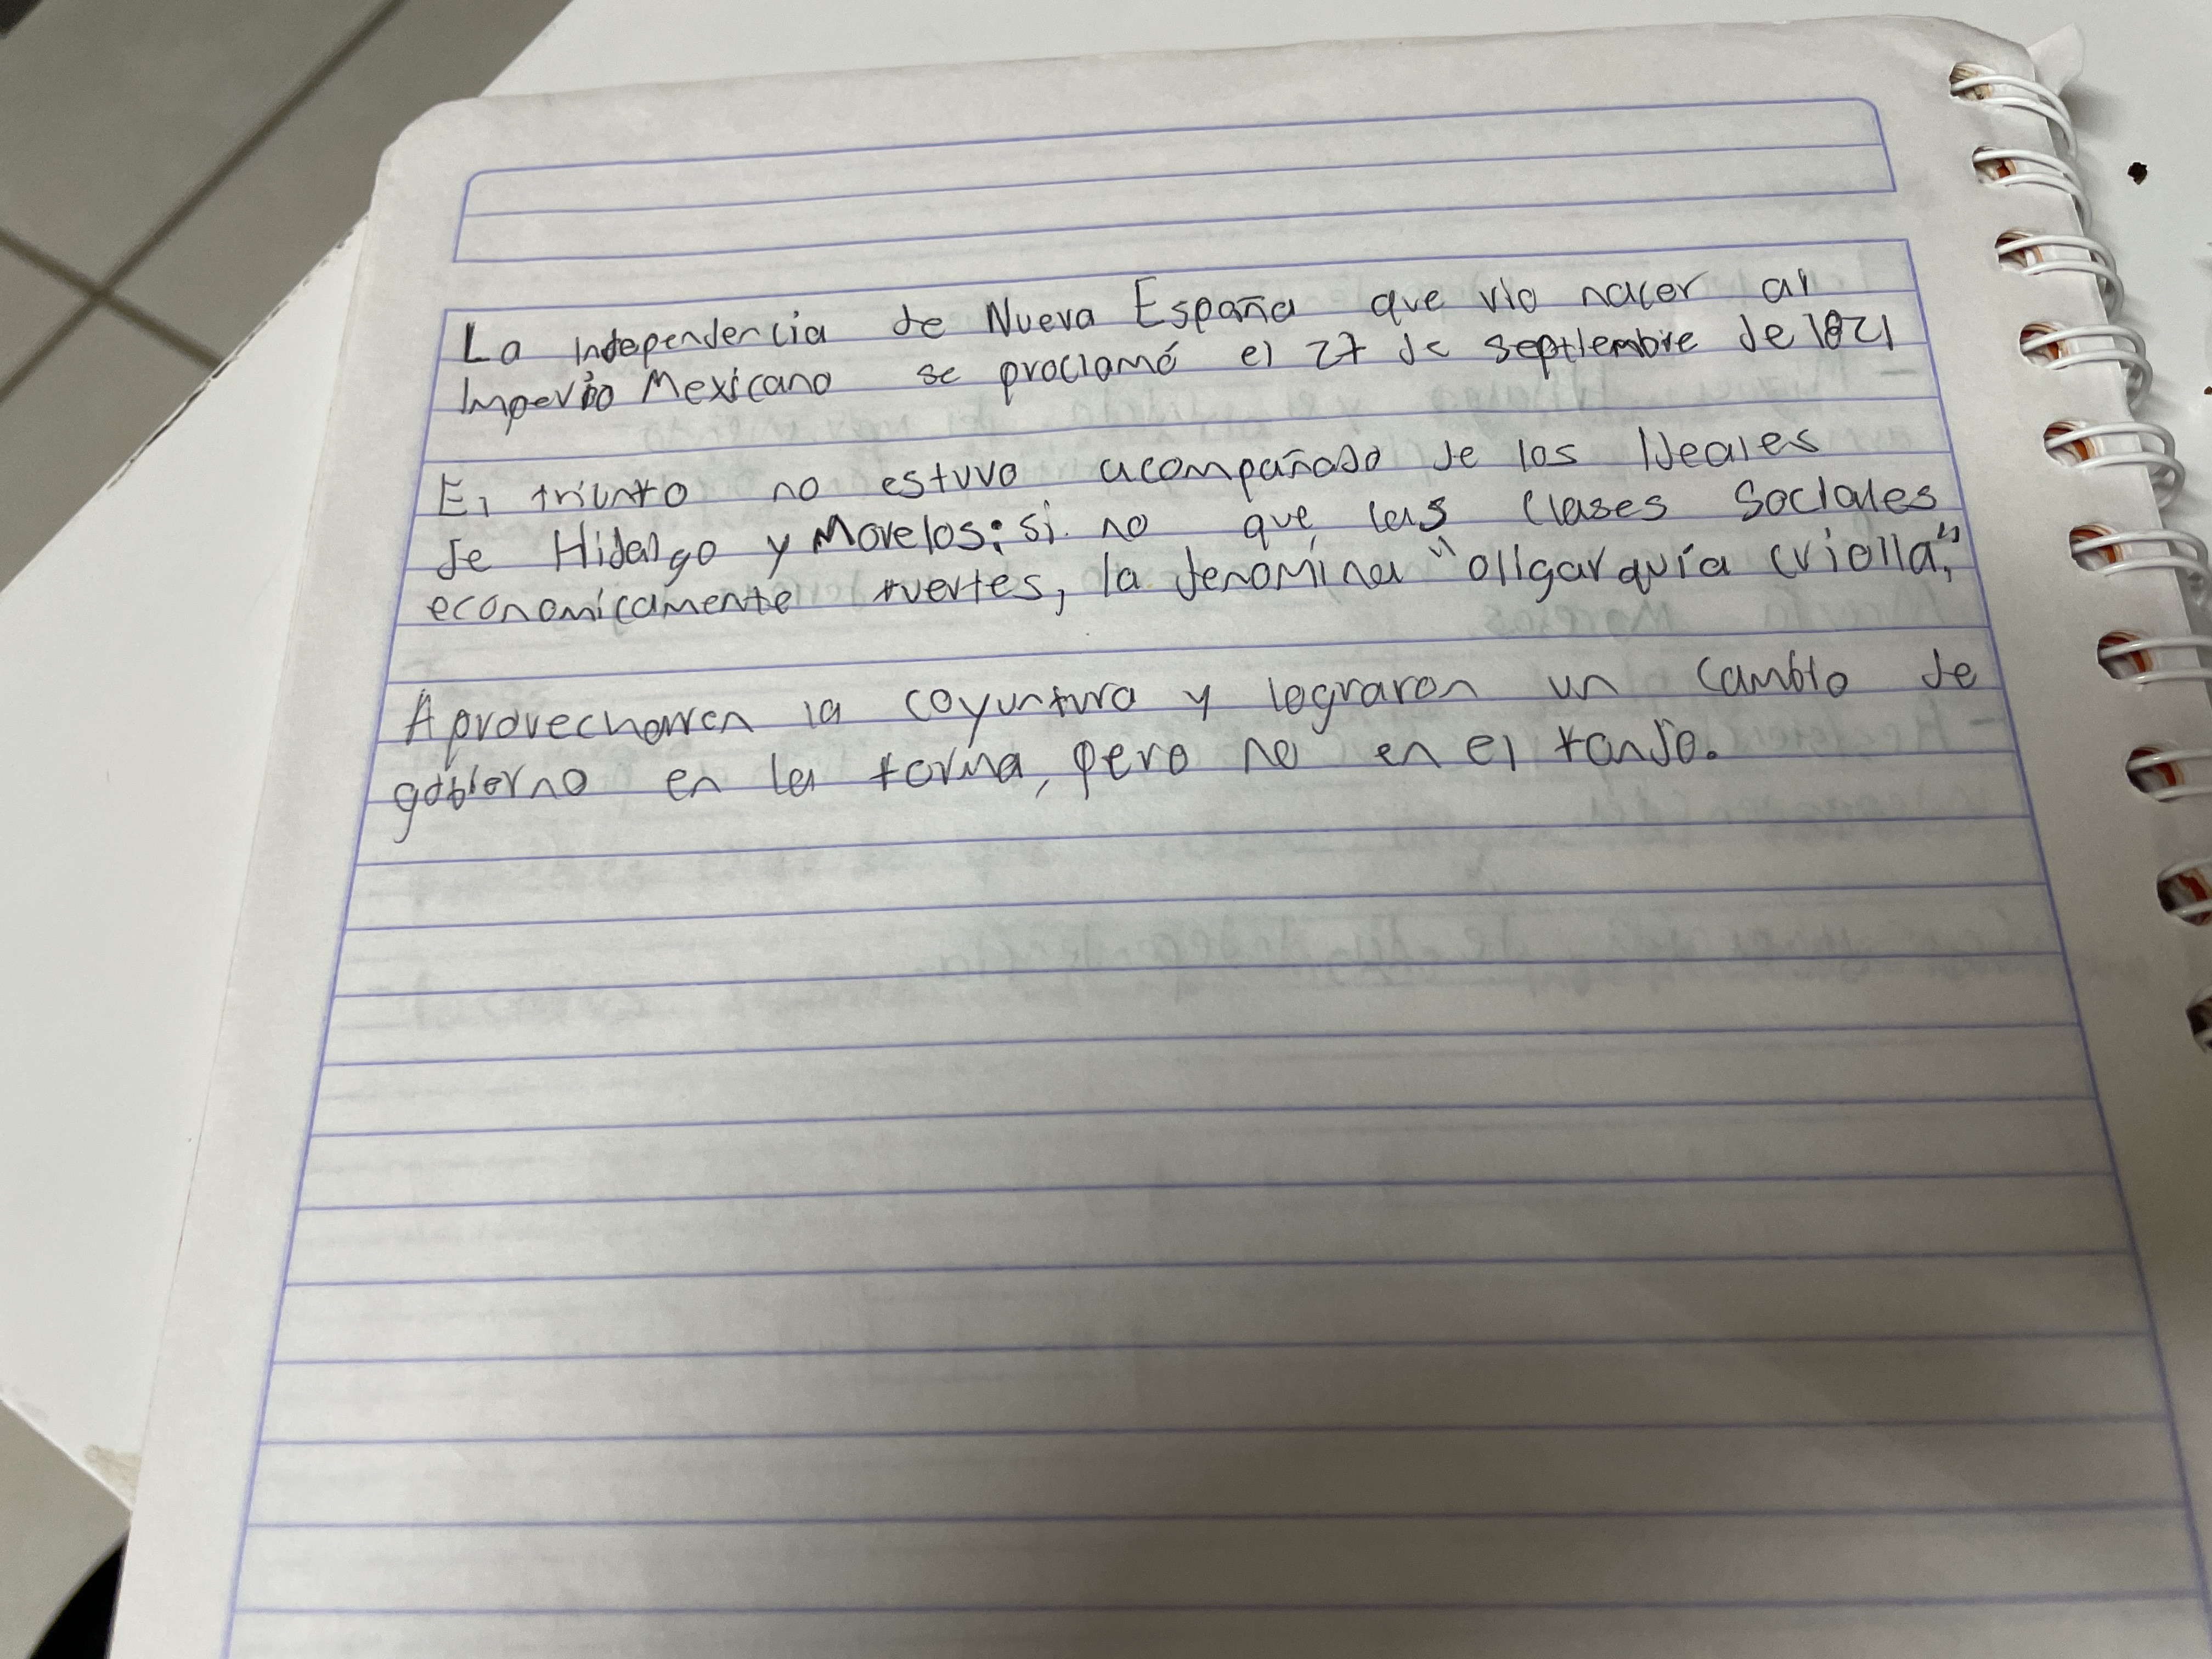 La independencia de Nueva España que vio nacer al
Imperio Mexicano se proclamó el 27 de septiembre de 1821
El triunfo no estuvo acompañado de los Ideales
de Hidalgo y Morelos; si no que las clases sociales
economicamente fuertes, la denomina "oligarquía criolla",
Aprovecharon la coyuntura y lograron un cambio de
gobierno en la forma, pero no en el fondo.